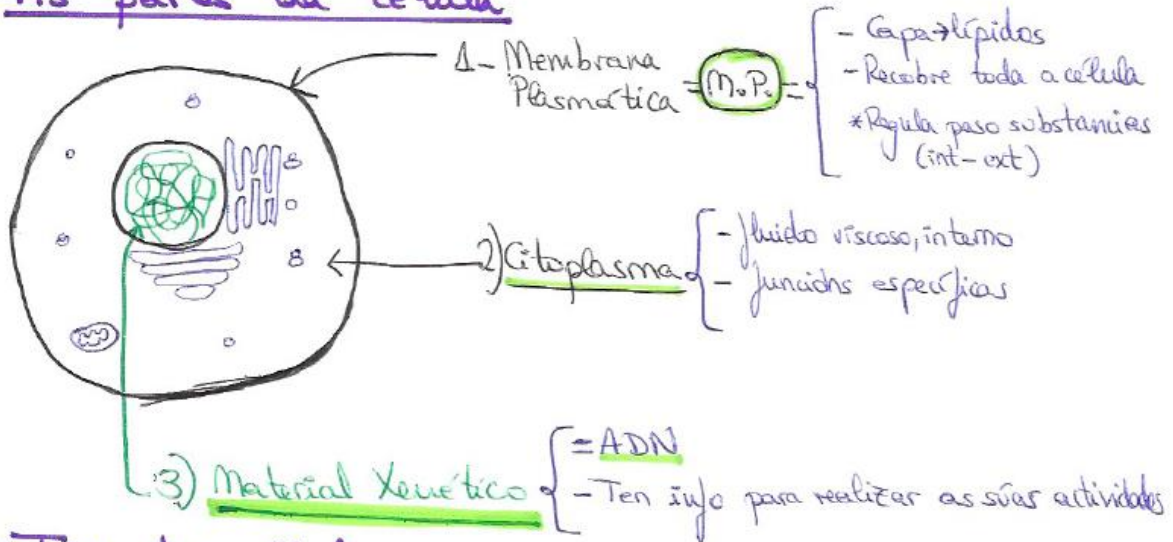 As partes da célula
1- Membrana
Plasmática = M.P. =
- Capa→lípidos
- Recobre toda a célula
*Regula paso substancias
(int-ext)
2) Citoplasma
- fluido viscoso, interno
- funcións específicas
3) Material Xenético
= ADN
- Ten info para realizar as súas actividades